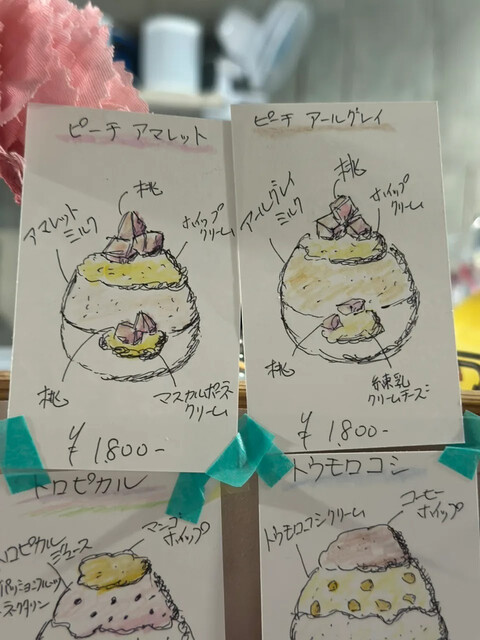 ピーチ アマレット
桃
アマレット
ミルク
ホイップ
クリーム
桃
マスカルポーネ
クリーム
¥1,800-
ピーチ アールグレイ
桃
アールグレイ
ミルク
ホイップ
クリーム
桃
練乳
クリームチーズ
¥1,800-
トロピカル
トロピカル
ジュース
パッションフルーツ
ネクタリン
マンゴー
ホイップ
トウモロコシ
トウモロコシクリーム
コーヒー
ホイップ